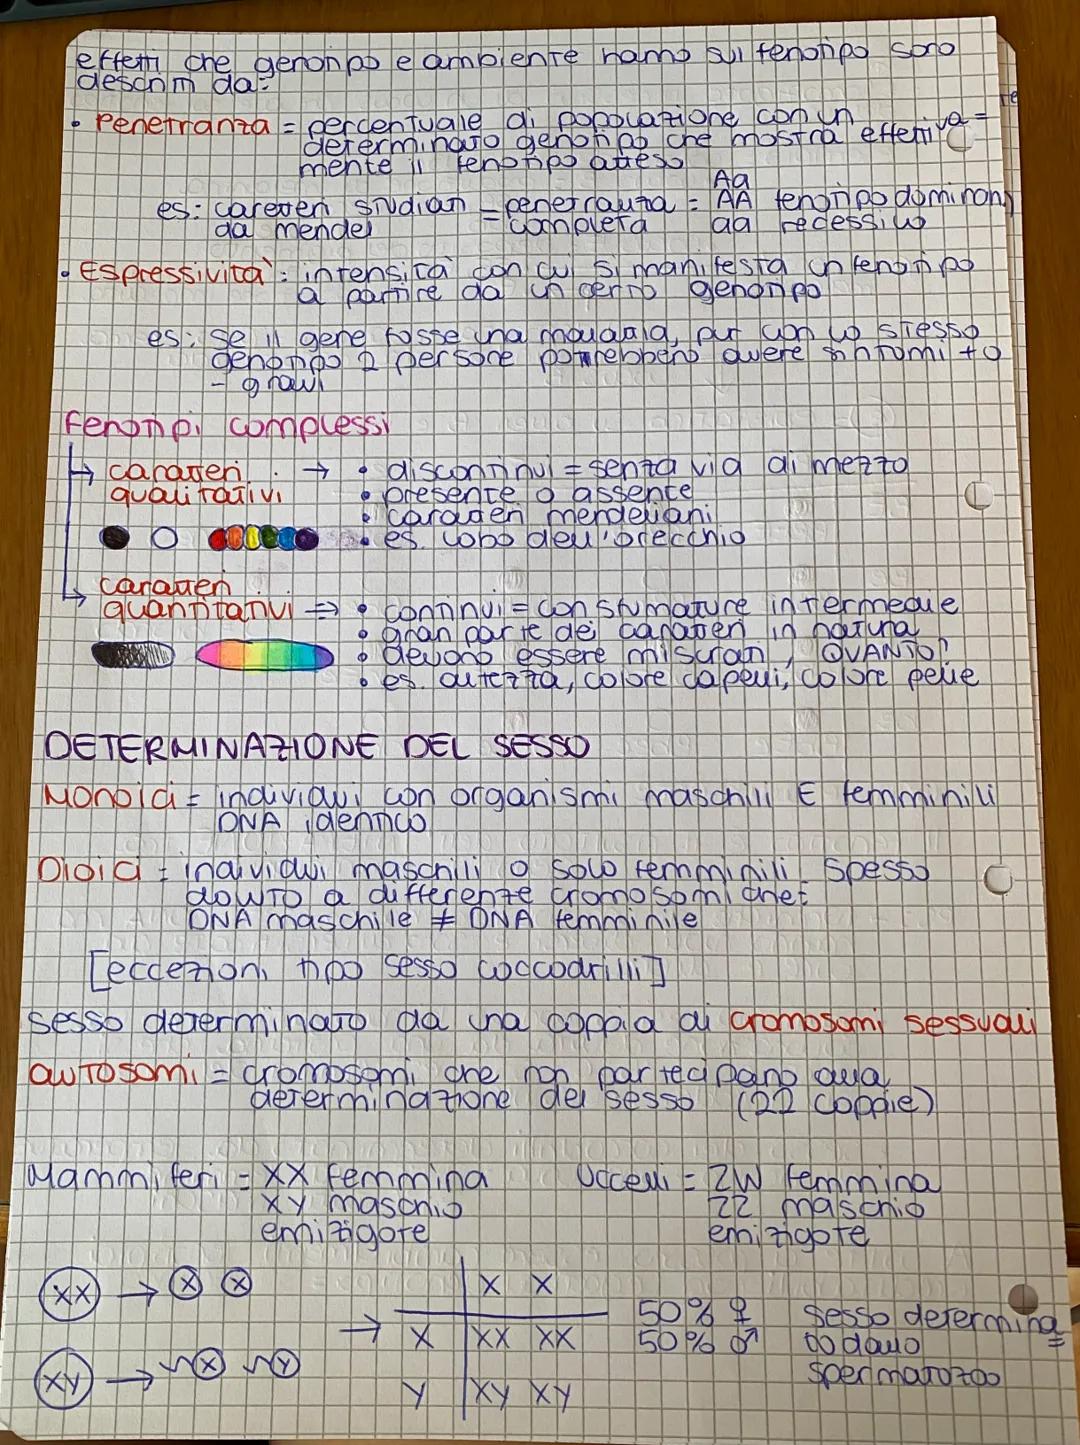 effetti che genotipo e ambiente hanno sul fenotipo sono
descritti da:
• Penetranza = percentuale di popolazione con un
determinato genotipo che mostra effettiva=
mente il fenotipo atteso
es: caratteri studiati = penetranza = Aa
AA fenotipo dominan
da mendel completa aa recessivo
• Espressività: intensità con cui si manifesta un fenotipo
a partire da un certo genotipo
es: se il gene fosse una malattia, pur con lo stesso
genotipo 2 persone potrebbero avere sintomi + o
- gravi
fenotipi complessi
↳ caratteri → • discontinui = senza via di mezzo
qualitativi • presente o assente
• caratteri mendeliani
• es. lobo dell'orecchio
↳ caratteri
quantitativi ⇒ • continui = con sfumature intermedie
• gran parte dei caratteri in natura
• devono essere misurati, QUANTO?
• es. altezza, colore capelli, colore pelle
DETERMINAZIONE DEL SESSO
Monoici = individui con organismi maschili E femminili
DNA identico
Dioici = individui maschili o solo femminili. Spesso
dovuto a differenze cromosomiche:
DNA maschile ≠ DNA femminile
[eccezioni tipo sesso coccodrilli]
sesso determinato da una coppia di cromosomi sessuali
autosomi = cromosomi che non partecipano alla
determinazione del sesso (22 coppie)
Mammiferi = XX femmina Uccelli = ZW femmina
XY maschio ZZ maschio
emizigote emizigote
XX → X X X X
50% ♀ sesso determina=
→ X XX XX 50% ♂ to dallo
XY → X Y spermatozoo
Y XY XY